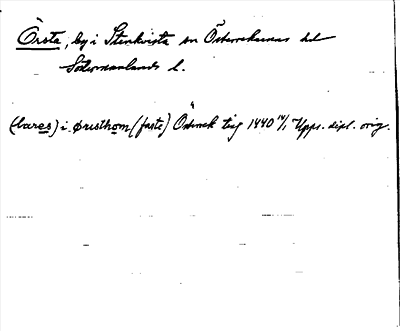 Örsta, by i Stenkvista sn Österrekarnes hd
Södermanlands l.
(bares) i øristhom (faste) Österrek tìg 1440 14/1 Upps. dipl. orig.